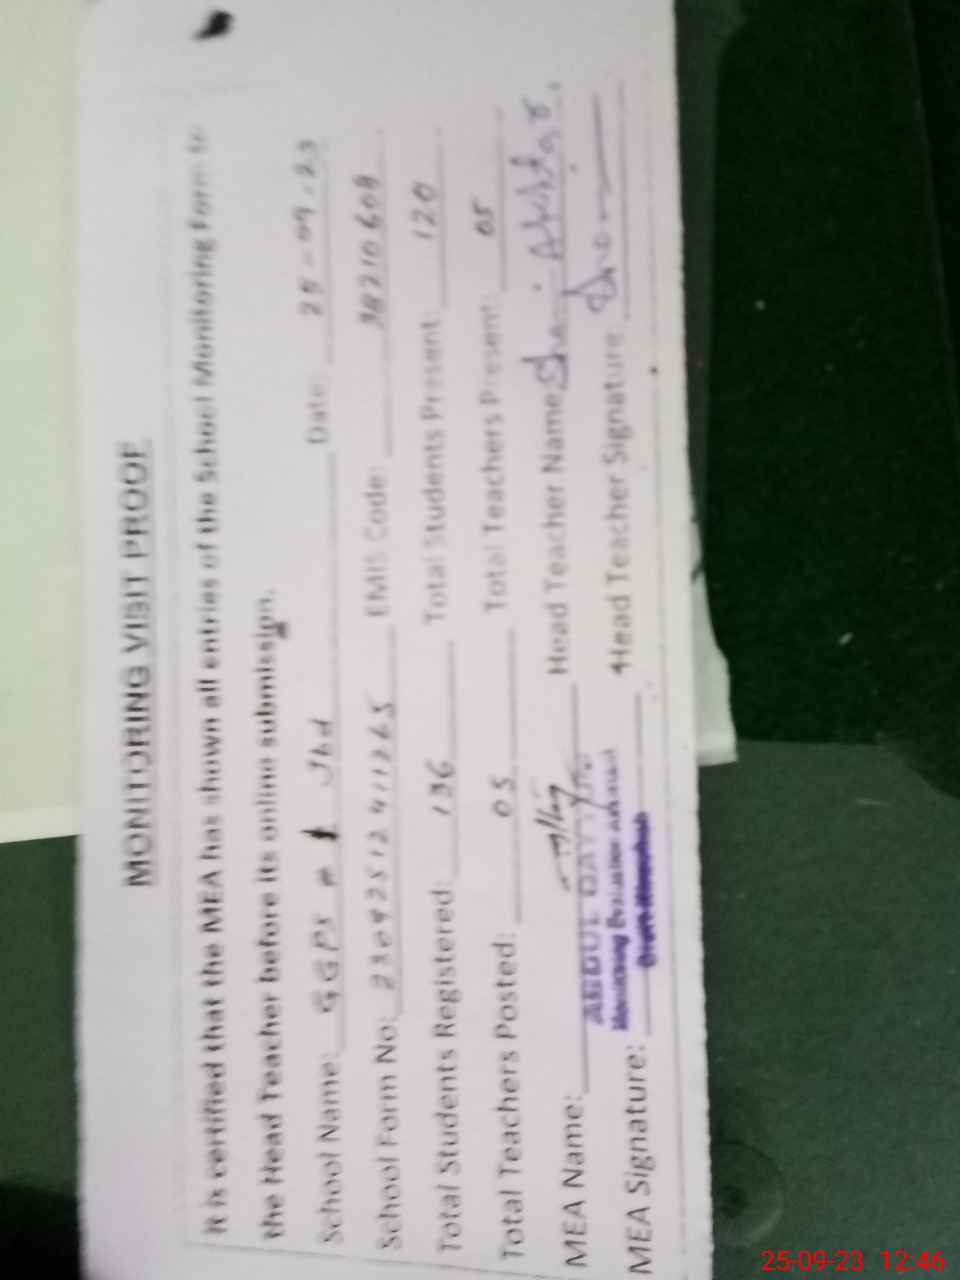 MONITORING VISIT PROOF
It is certified that the MEA has shown all entries of the School Monitoring Form to
the Head Teacher before its online submission.
School Name: GGPS Jbd Date: 25-09-23
School Form No: EMIS Code: 38210608
Total Students Registered: 136 Total Students Present: 120
Total Teachers Posted: 05 Total Teachers Present: 05
MEA Name: Head Teacher Name: Akhtar
ABDUL
Monitoring Evaluation Assistant
MEA Signature: Head Teacher Signature:
25-09-23 12:46